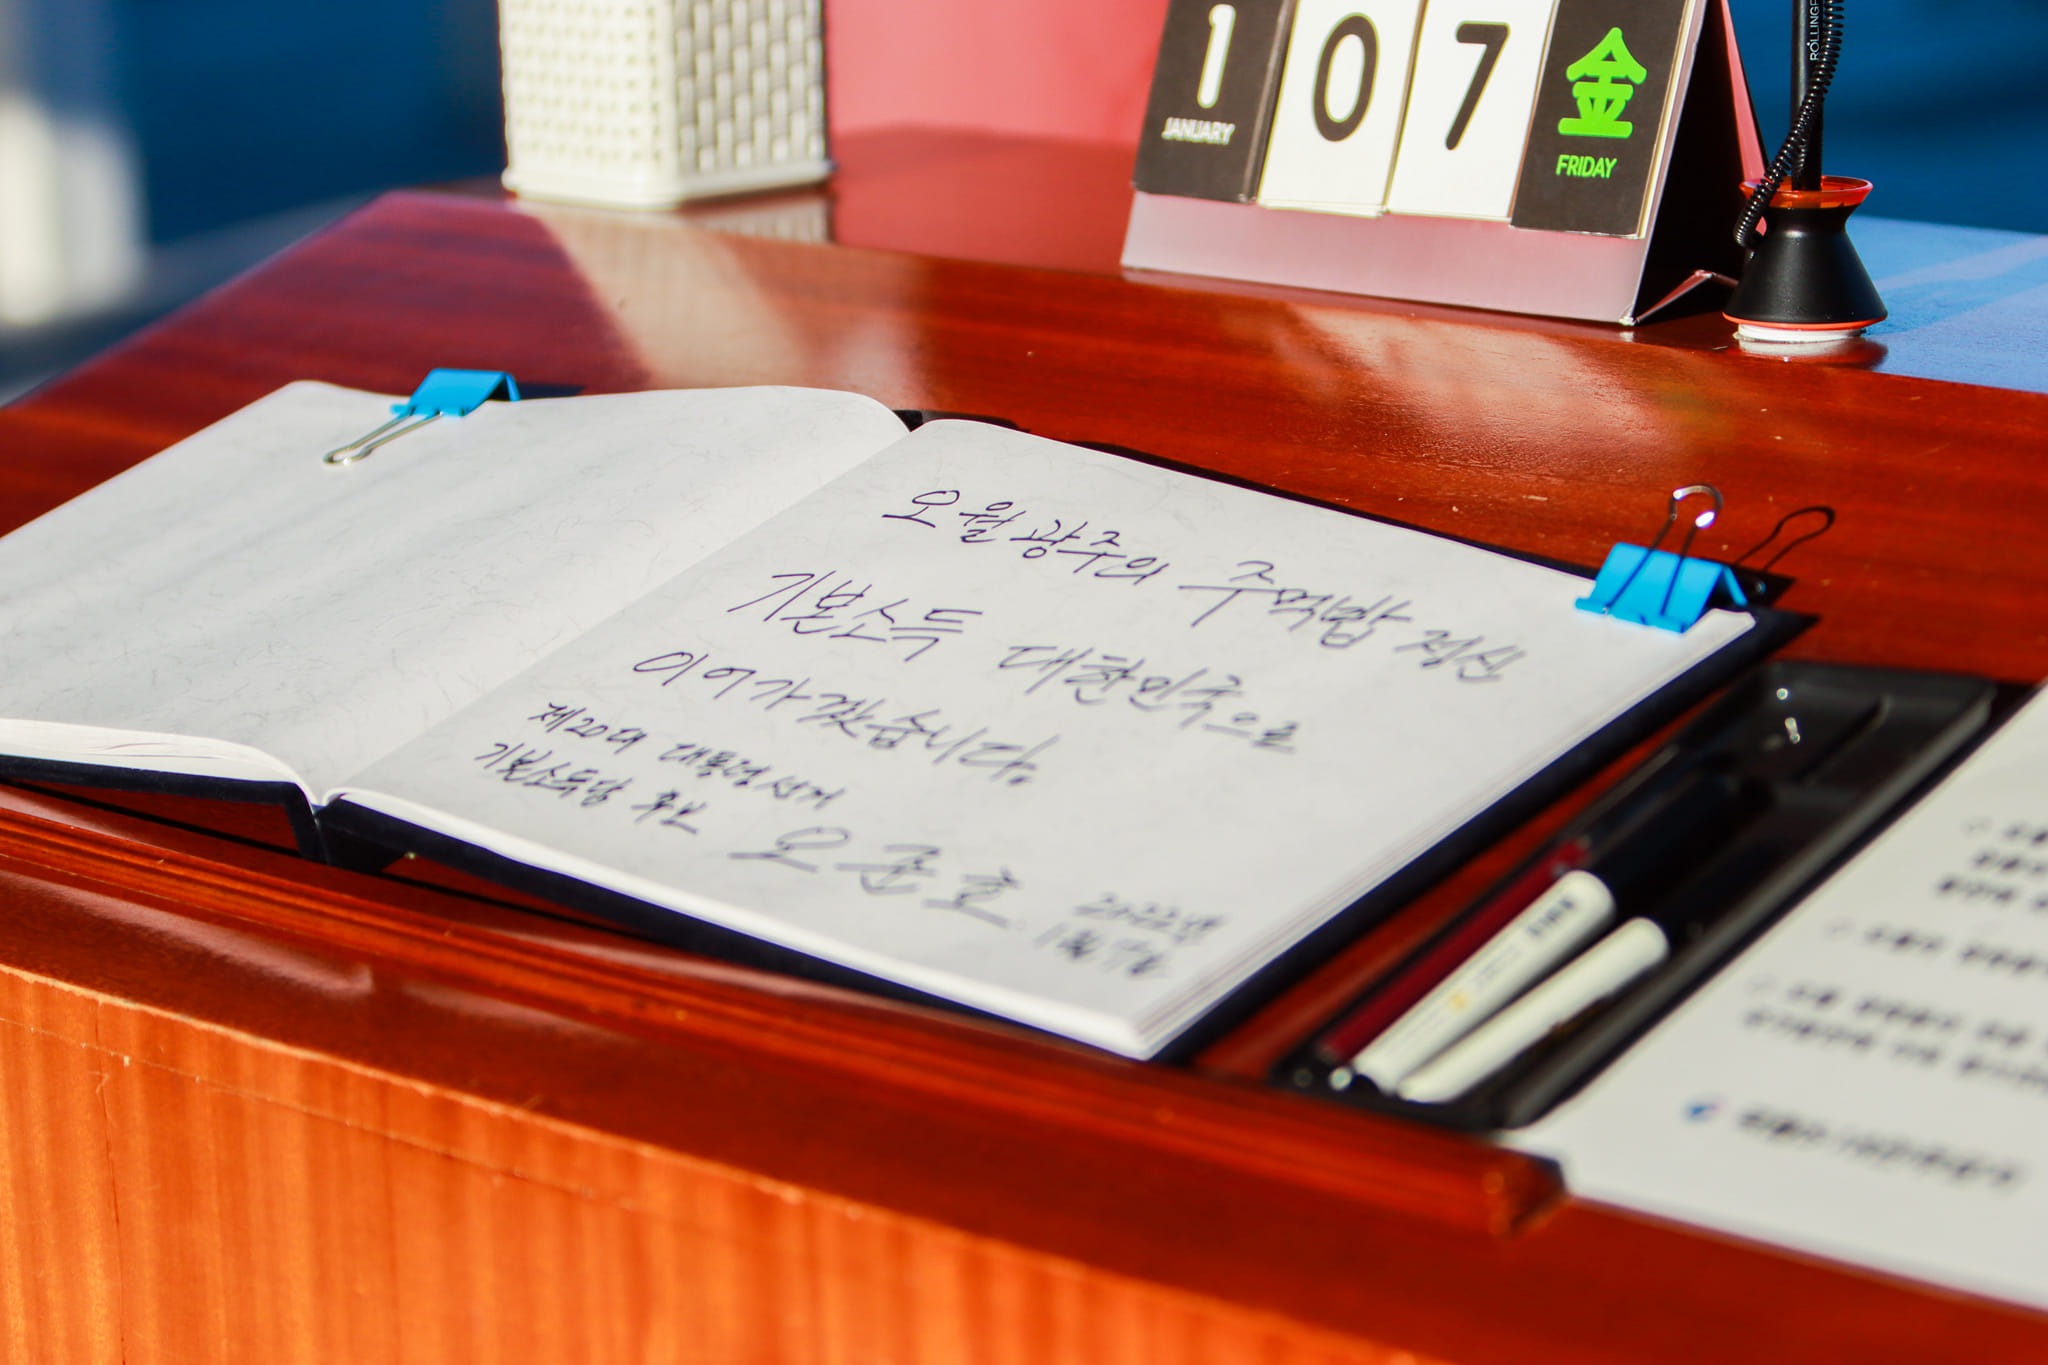 1
JANUARY
0
7
金
FRIDAY
ROLLING
오월 광주의 주먹밥 정신
기본소득 대한민국으로
이어가겠습니다.
제20대 대통령선거
기본소득당 후보 오준호
2022년
1월 7일